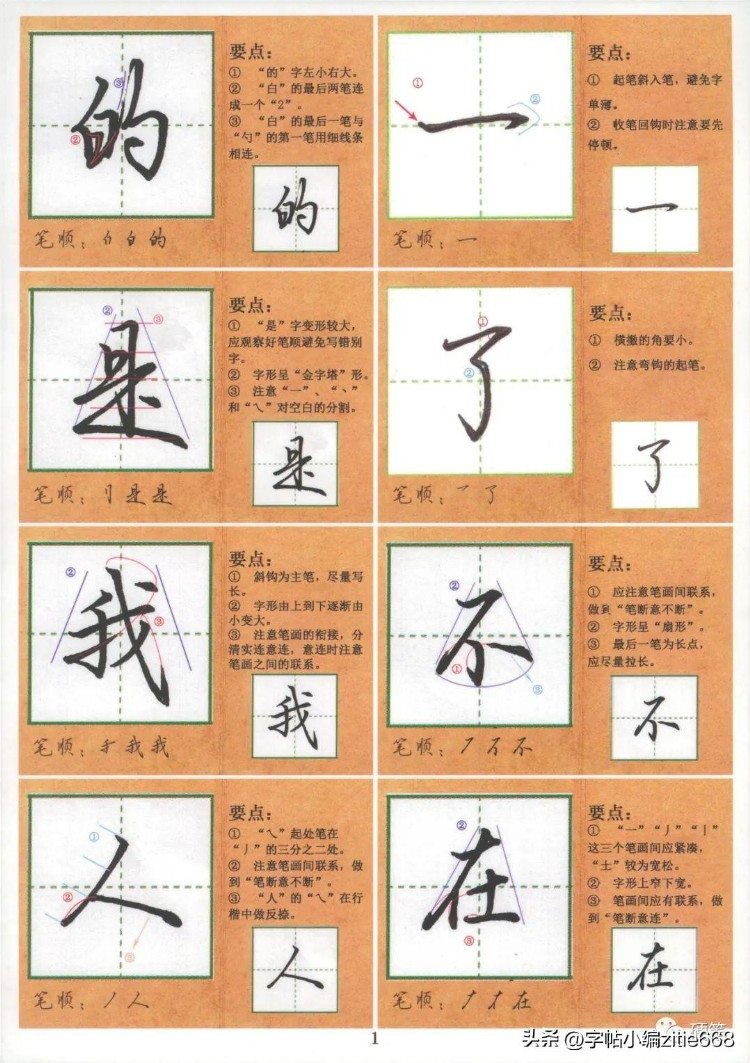 的
要点：
① “的”字左小右大。
② “白”的最后两笔连
成一个“2”。
③ “白”的最后一笔与
“勺”的第一笔用细线条
相连。
的
笔顺：白 的
一
要点：
① 起笔斜入笔，避免字
单薄。
② 收笔回钩时注意要先
停顿。
一
笔顺：一
是
要点：
① “是”字变形较大，
应观察好笔顺避免写错别
字。
② 字形呈“金字塔”形。
③ 注意“一”、“丶”
和“㇏”对空白的分割。
是
笔顺：是 是
了
要点：
① 横撇的角要小。
② 注意弯钩的起笔。
了
笔顺：乛 了
我
要点：
① 斜钩为主笔，尽量写
长。
② 字形由上到下逐渐由
小变大。
③ 注意笔画的衔接，分
清实连意连，意连时注意
笔画之间的联系。
我
笔顺：我 我
不
要点：
① 应注意笔画间联系，
做到“笔断意不断”。
② 字形呈“扇形”。
③ 最后一笔为长点，
应尽量拉长。
不
笔顺：丆 不 不
人
要点：
① “㇏”起处笔在
“丿”的三分之二处。
② 注意笔画间联系，做
到“笔断意不断”。
③ “人”的“㇏”在行
楷中做反捺。
人
笔顺：丿 人
在
要点：
① “一”“丿”“丨”
这三个笔画间应紧凑，
“土”较为宽松。
② 字形上窄下宽。
③ 笔画间应有联系，做
到“笔断意连”。
在
笔顺：ナ 才 在
1
硬笔
头条 @字帖小编zitie668